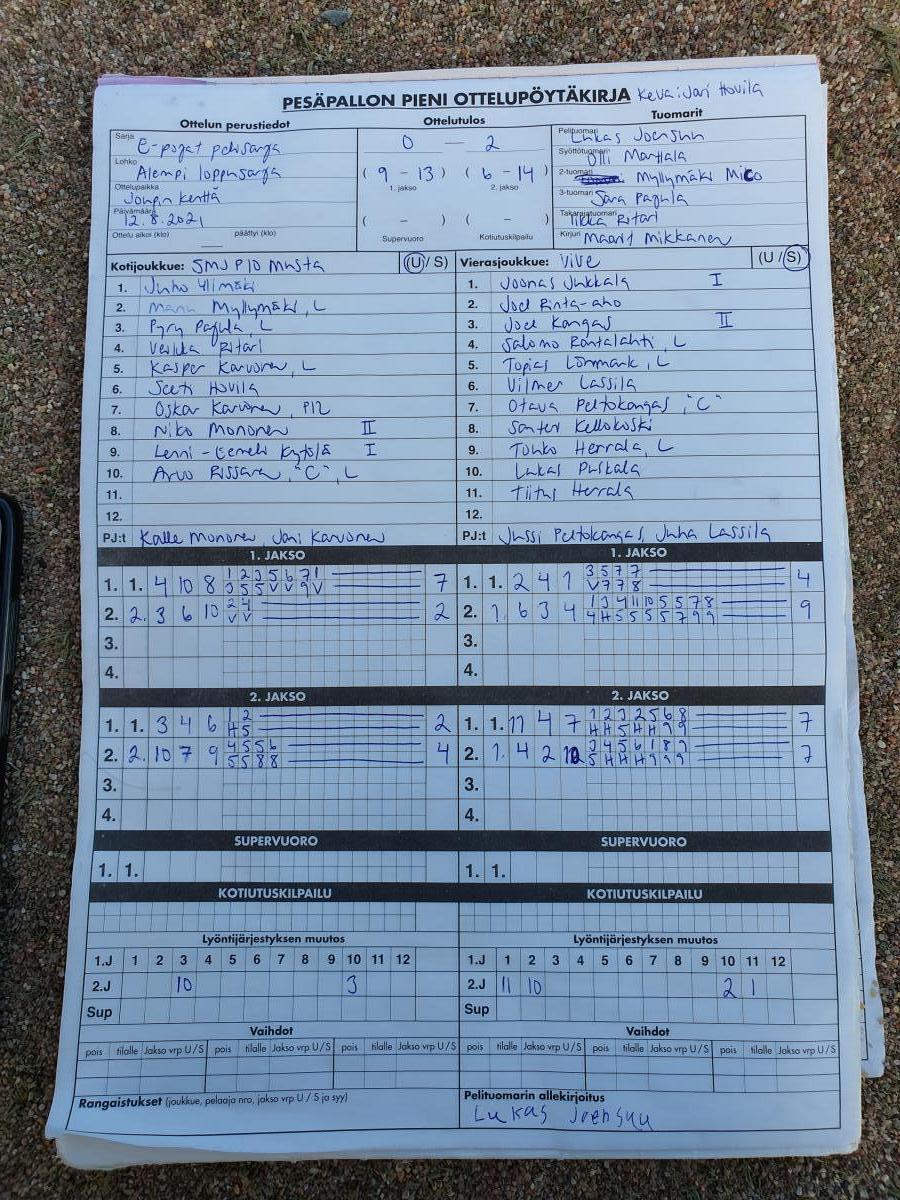 PESÄPALLON PIENI OTTELUPÖYTÄKIRJA Keväi:Jari Hovila
Ottelun perustiedot
Sarja E-pojat
Lohko Alempi loppusarja
Ottelupaikka Joupin kenttä
Päivämäärä 12.8.2021
Ottelu alkoi (klo) päättyi (klo)
Ottelutulos
0 — 2
( 9 - 13 ) ( 6 - 14 )
1. jakso 2. jakso
( - ) ( - )
Supervuoro Kotiutuskilpailu
Tuomarit
Pelituomari Lukas Joensuu
Syöttötuomari Olli Marttala
2-tuomari Myllymäki Mico
3-tuomari Sara Pajula
Takarajatuomari Iikka Ritari
Kirjuri Maarit Mikkanen
Kotijoukkue: SMJ P10 Musta (U / S)
1. Juho Ylimäki
2. Manu Myllymäki, L
3. Pyry Pajula, L
4. Veikka Ritari
5. Kasper Karvonen, L
6. Seeti Hovila
7. Oskar Karvonen, P12
8. Niko Mononen II
9. Lenni-Eemeli Kytölä I
10. Arvo Rissanen, "C", L
11.
12.
PJ:t Kalle Mononen, Jani Karvonen
Vierasjoukkue: ViVe (U / S)
1. Joonas Jukkala I
2. Joel Rinta-aho
3. Joel Kangas II
4. Salomo Rantalahti, L
5. Topias Lönnmark, L
6. Vilmer Lassila
7. Otava Peltokangas, "C"
8. Santeri Kellokoski
9. Touko Herrala, L
10. Lukas Puskala
11. Tiitus Herrala
12.
PJ:t Jussi Peltokangas, Juha Lassila
1. JAKSO
1. 1. 4 10 8 1 2 3 5 6 7 1 7
3 5 5 V V 9 V
2. 2. 3 6 10 2 4 2
V V
3.
4.
1. JAKSO
1. 1. 2 4 1 3 5 7 7 4
V 7 7 8
2. 1. 6 3 4 1 3 4 11 10 5 5 7 8 9
4 H 5 5 5 5 7 9 9
3.
4.
2. JAKSO
1. 1. 3 4 6 1 2 2
H 5
2. 2. 10 7 9 4 5 5 6 4
5 5 8 8
3.
4.
2. JAKSO
1. 1. 11 4 7 1 2 3 2 5 6 8 7
H H 5 H H 9 9
2. 1. 4 2 10 3 4 5 6 1 8 7 7
5 H H H 9 9 9
3.
4.
SUPERVUORO
1. 1.
SUPERVUORO
1. 1.
KOTIUTUSKILPAILU
KOTIUTUSKILPAILU
Lyöntijärjestyksen muutos
1.J 1 2 3 4 5 6 7 8 9 10 11 12
2.J 10 3
Sup
Lyöntijärjestyksen muutos
1.J 1 2 3 4 5 6 7 8 9 10 11 12
2.J 11 10 2 1
Sup
Vaihdot
pois tilalle Jakso vrp U / S pois tilalle Jakso vrp U / S pois tilalle Jakso vrp U / S
Vaihdot
pois tilalle Jakso vrp U / S pois tilalle Jakso vrp U / S pois tilalle Jakso vrp U / S
Rangaistukset (joukkue, pelaaja nro, jakso vrp U / S ja syy)
Pelituomarin allekirjoitus
Lukas Joensuu